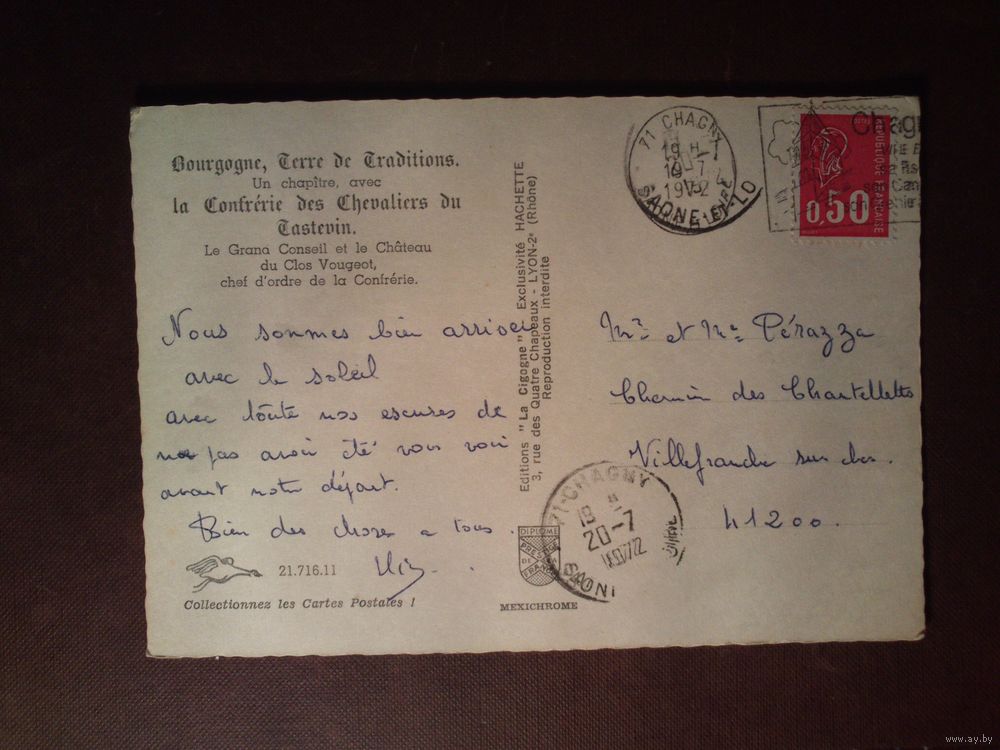 Bourgogne, Terre de Traditions.
Un chapître, avec
la Confrérie des Chevaliers du
Tastevin.
Le Grand Conseil et le Château
du Clos Vougeot,
chef d'ordre de la Confrérie.
Nous sommes bien arrivées
avec le soleil
avec toute nos escuses de
ne pas avoir été vous voir
avant notre départ.
Bien des choses a tous.
21.716.11
Collectionnez les Cartes Postales !
Editions "La Cigogne" Exclusivité HACHETTE
3, rue des Quatre Chapeaux - LYON-2e (Rhône)
Reproduction interdite
DIPLOME
PRESTIGE
DE
FRANCE
MEXICHROME
71 CHAGNY
19 H
1972
SAONE-ET-LOIRE
Chagn
REPUBLIQUE FRANÇAISE
0,50
Mr et Me Pérazza
Chemin des Chantellettes
Villefranche sur cher.
41200.
71-CHAGNY
19 H
20-7
1972
SAON
www.ay.by